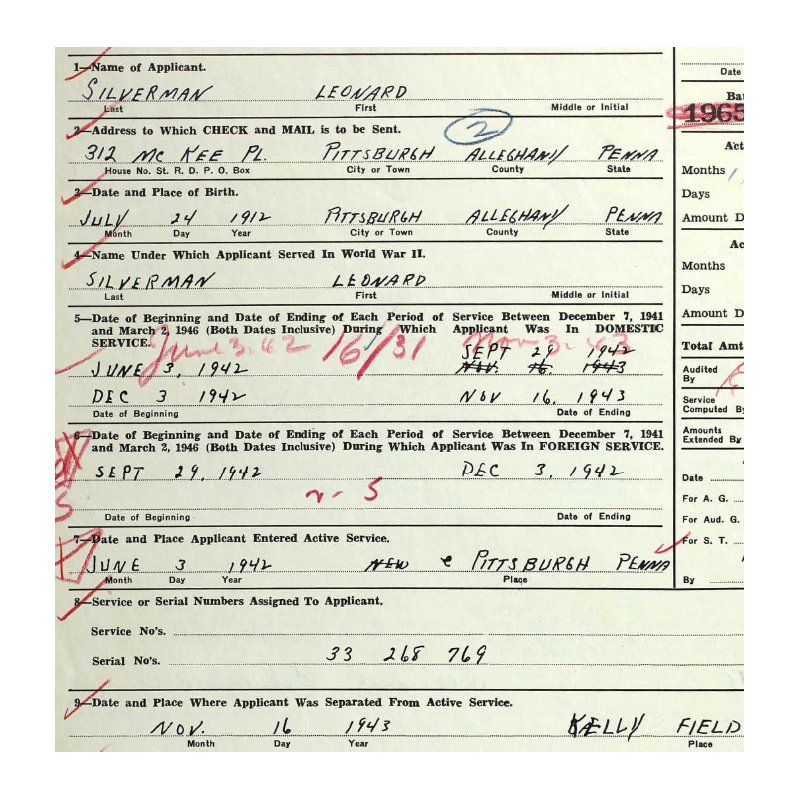 1—Name of Applicant.
SILVERMAN LEONARD
Last First Middle or Initial
2—Address to Which CHECK and MAIL is to be Sent.
2
312 MC KEE PL. PITTSBURGH ALLEGHANY PENNA
House No. St. R. D. P. O. Box City or Town County State
3—Date and Place of Birth.
JULY 24 1912 PITTSBURGH ALLEGHANY PENNA
Month Day Year City or Town County State
4—Name Under Which Applicant Served In World War II.
SILVERMAN LEONARD
Last First Middle or Initial
5—Date of Beginning and Date of Ending of Each Period of Service Between December 7, 1941
and March 2, 1946 (Both Dates Inclusive) During Which Applicant Was In DOMESTIC
SERVICE.
June 3-42 16/31 Nov 3-43
SEPT 29 1942
JUNE 3, 1942 NOV. 16. 1943
DEC 3 1942 NOV 16, 1943
Date of Beginning Date of Ending
6—Date of Beginning and Date of Ending of Each Period of Service Between December 7, 1941
and March 2, 1946 (Both Dates Inclusive) During Which Applicant Was In FOREIGN SERVICE.
SEPT 29, 1942 DEC 3, 1942
Date of Beginning Date of Ending
7—Date and Place Applicant Entered Active Service.
JUNE 3 1942 NEW PITTSBURGH PENNA
Month Day Year Place
8—Service or Serial Numbers Assigned To Applicant.
Service No's.
Serial No's. 33 268 769
9—Date and Place Where Applicant Was Separated From Active Service.
NOV. 16 1943 KELLY FIELD
Month Day Year Place
Date
Bat
1965
Act
Months
Days
Amount D
Ac
Months
Days
Amount D
Total Amt
Audited
By
Service
Computed By
Amounts
Extended By
Date
For A. G.
For Aud. G.
For S. T.
By